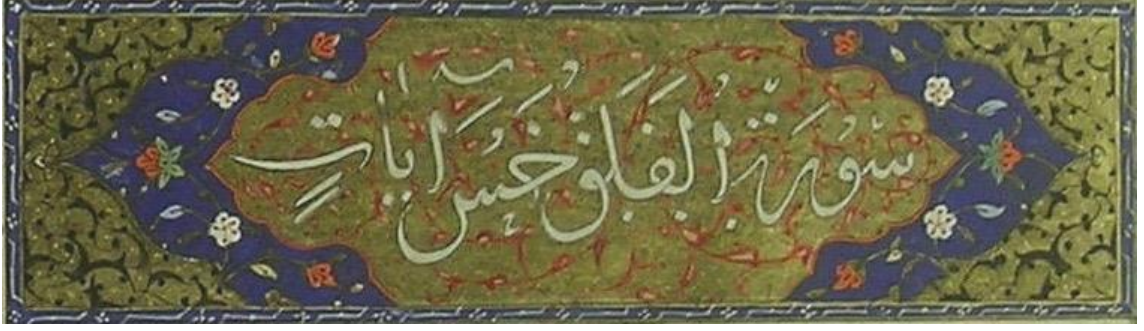 سُورَةُ الْفَلَقِ خَمْسُ اٰيَاتٍ